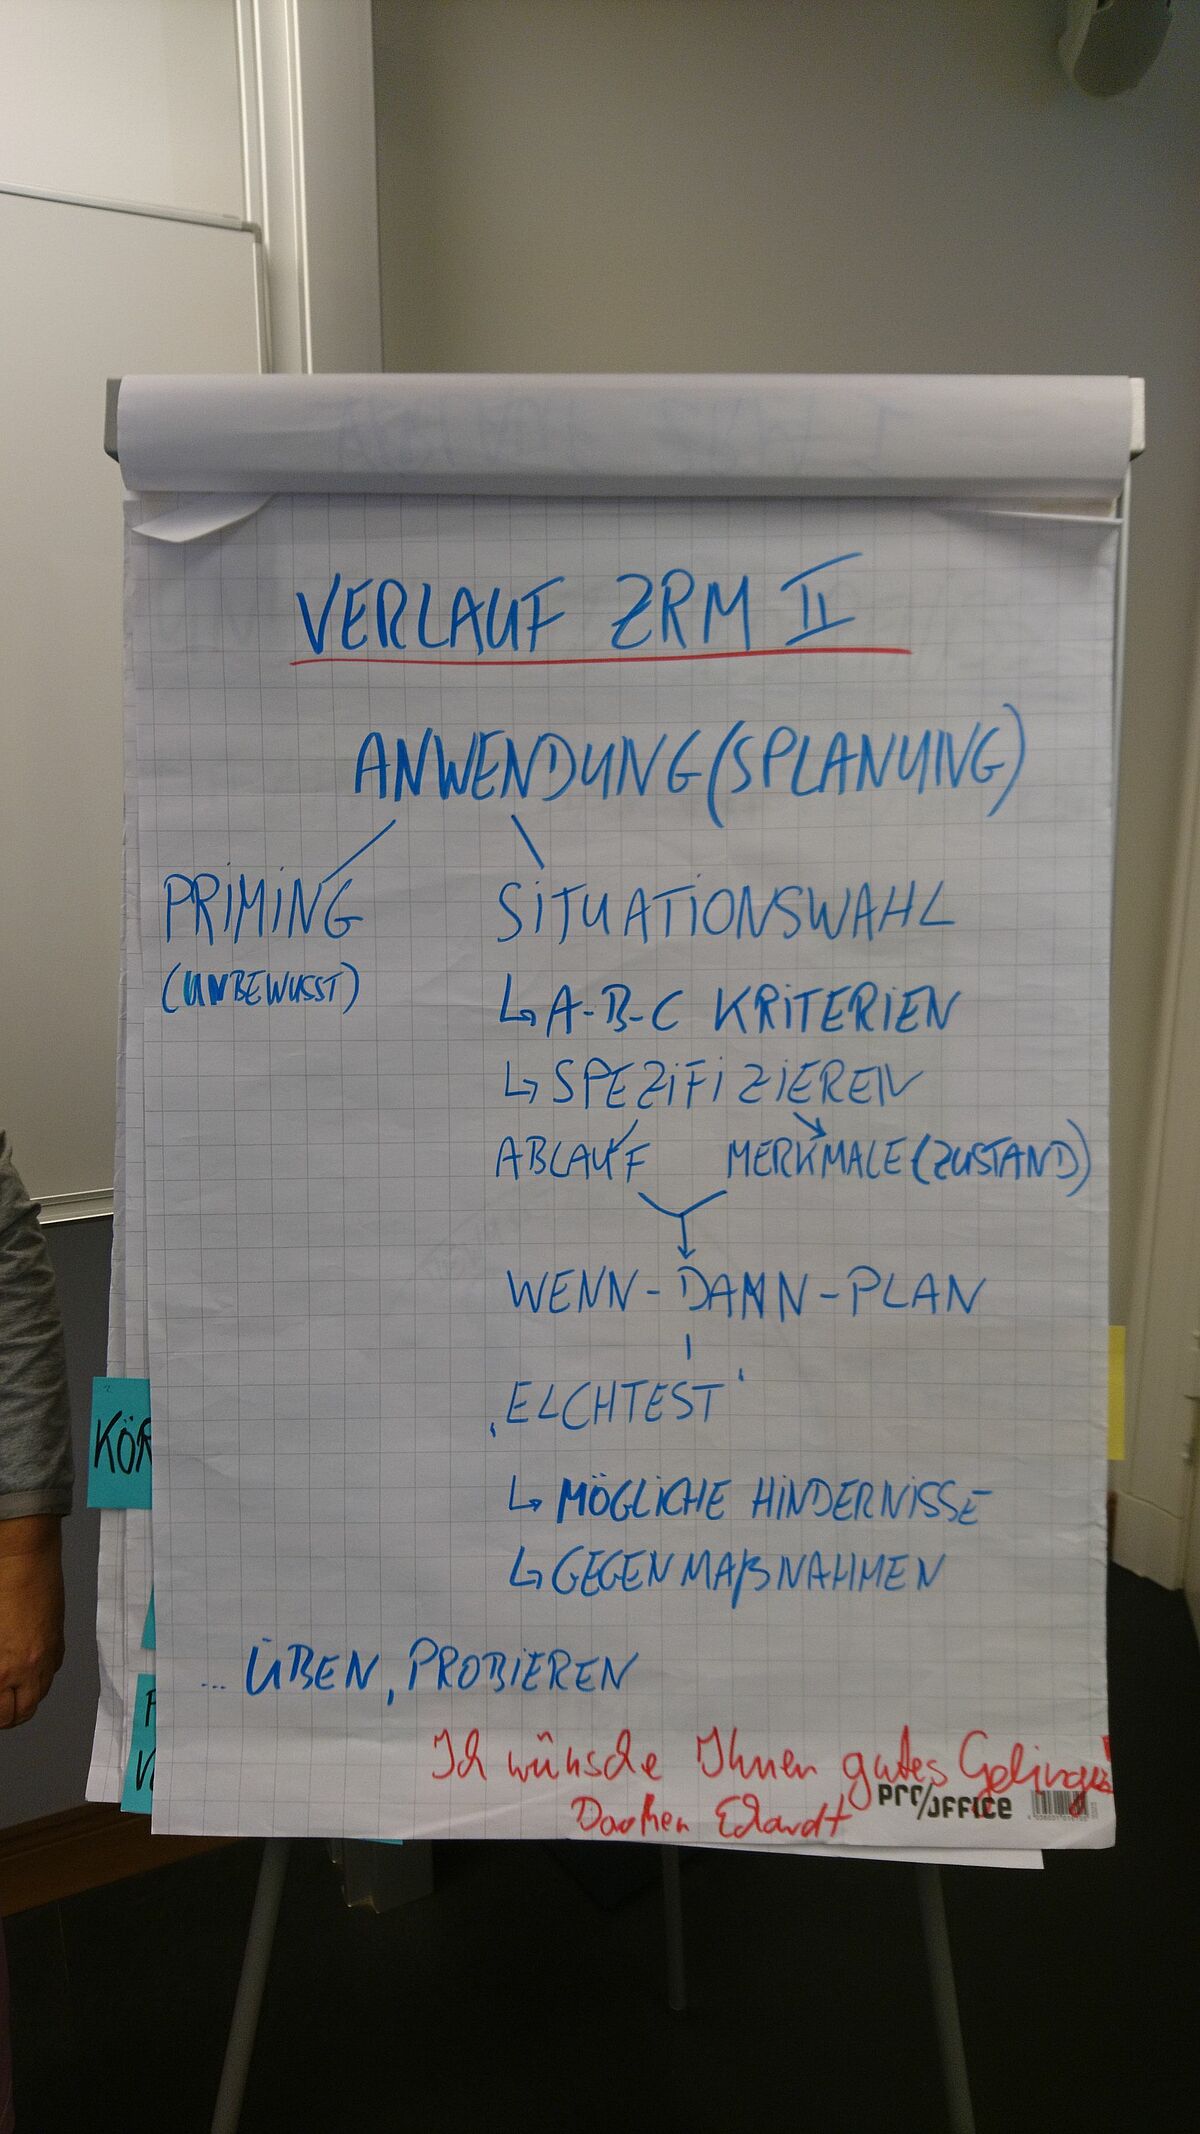 VERLAUF ZRM II
ANWENDUNG(SPLANUNG)
PRIMING
(UNBEWUSST)
SITUATIONSWAHL
↳ A-B-C KRITERIEN
↳ SPEZIFIZIEREN
ABLAUF MERKMALE (ZUSTAND)
WENN-DANN-PLAN
‚ELCHTEST'
↳ MÖGLICHE HINDERNISSE
↳ GEGENMAßNAHMEN
... ÜBEN, PROBIEREN
Ich wünsche Ihnen gutes Gelingen!
pro/OFFICE
KÖR